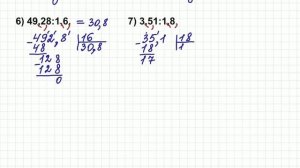 6) 49,28:1,6, = 30,8
-492,8 | 16
48 | 30,8
-128
128
0
7) 3,51:1,8,
-35,1 | 18
18 | 1
17